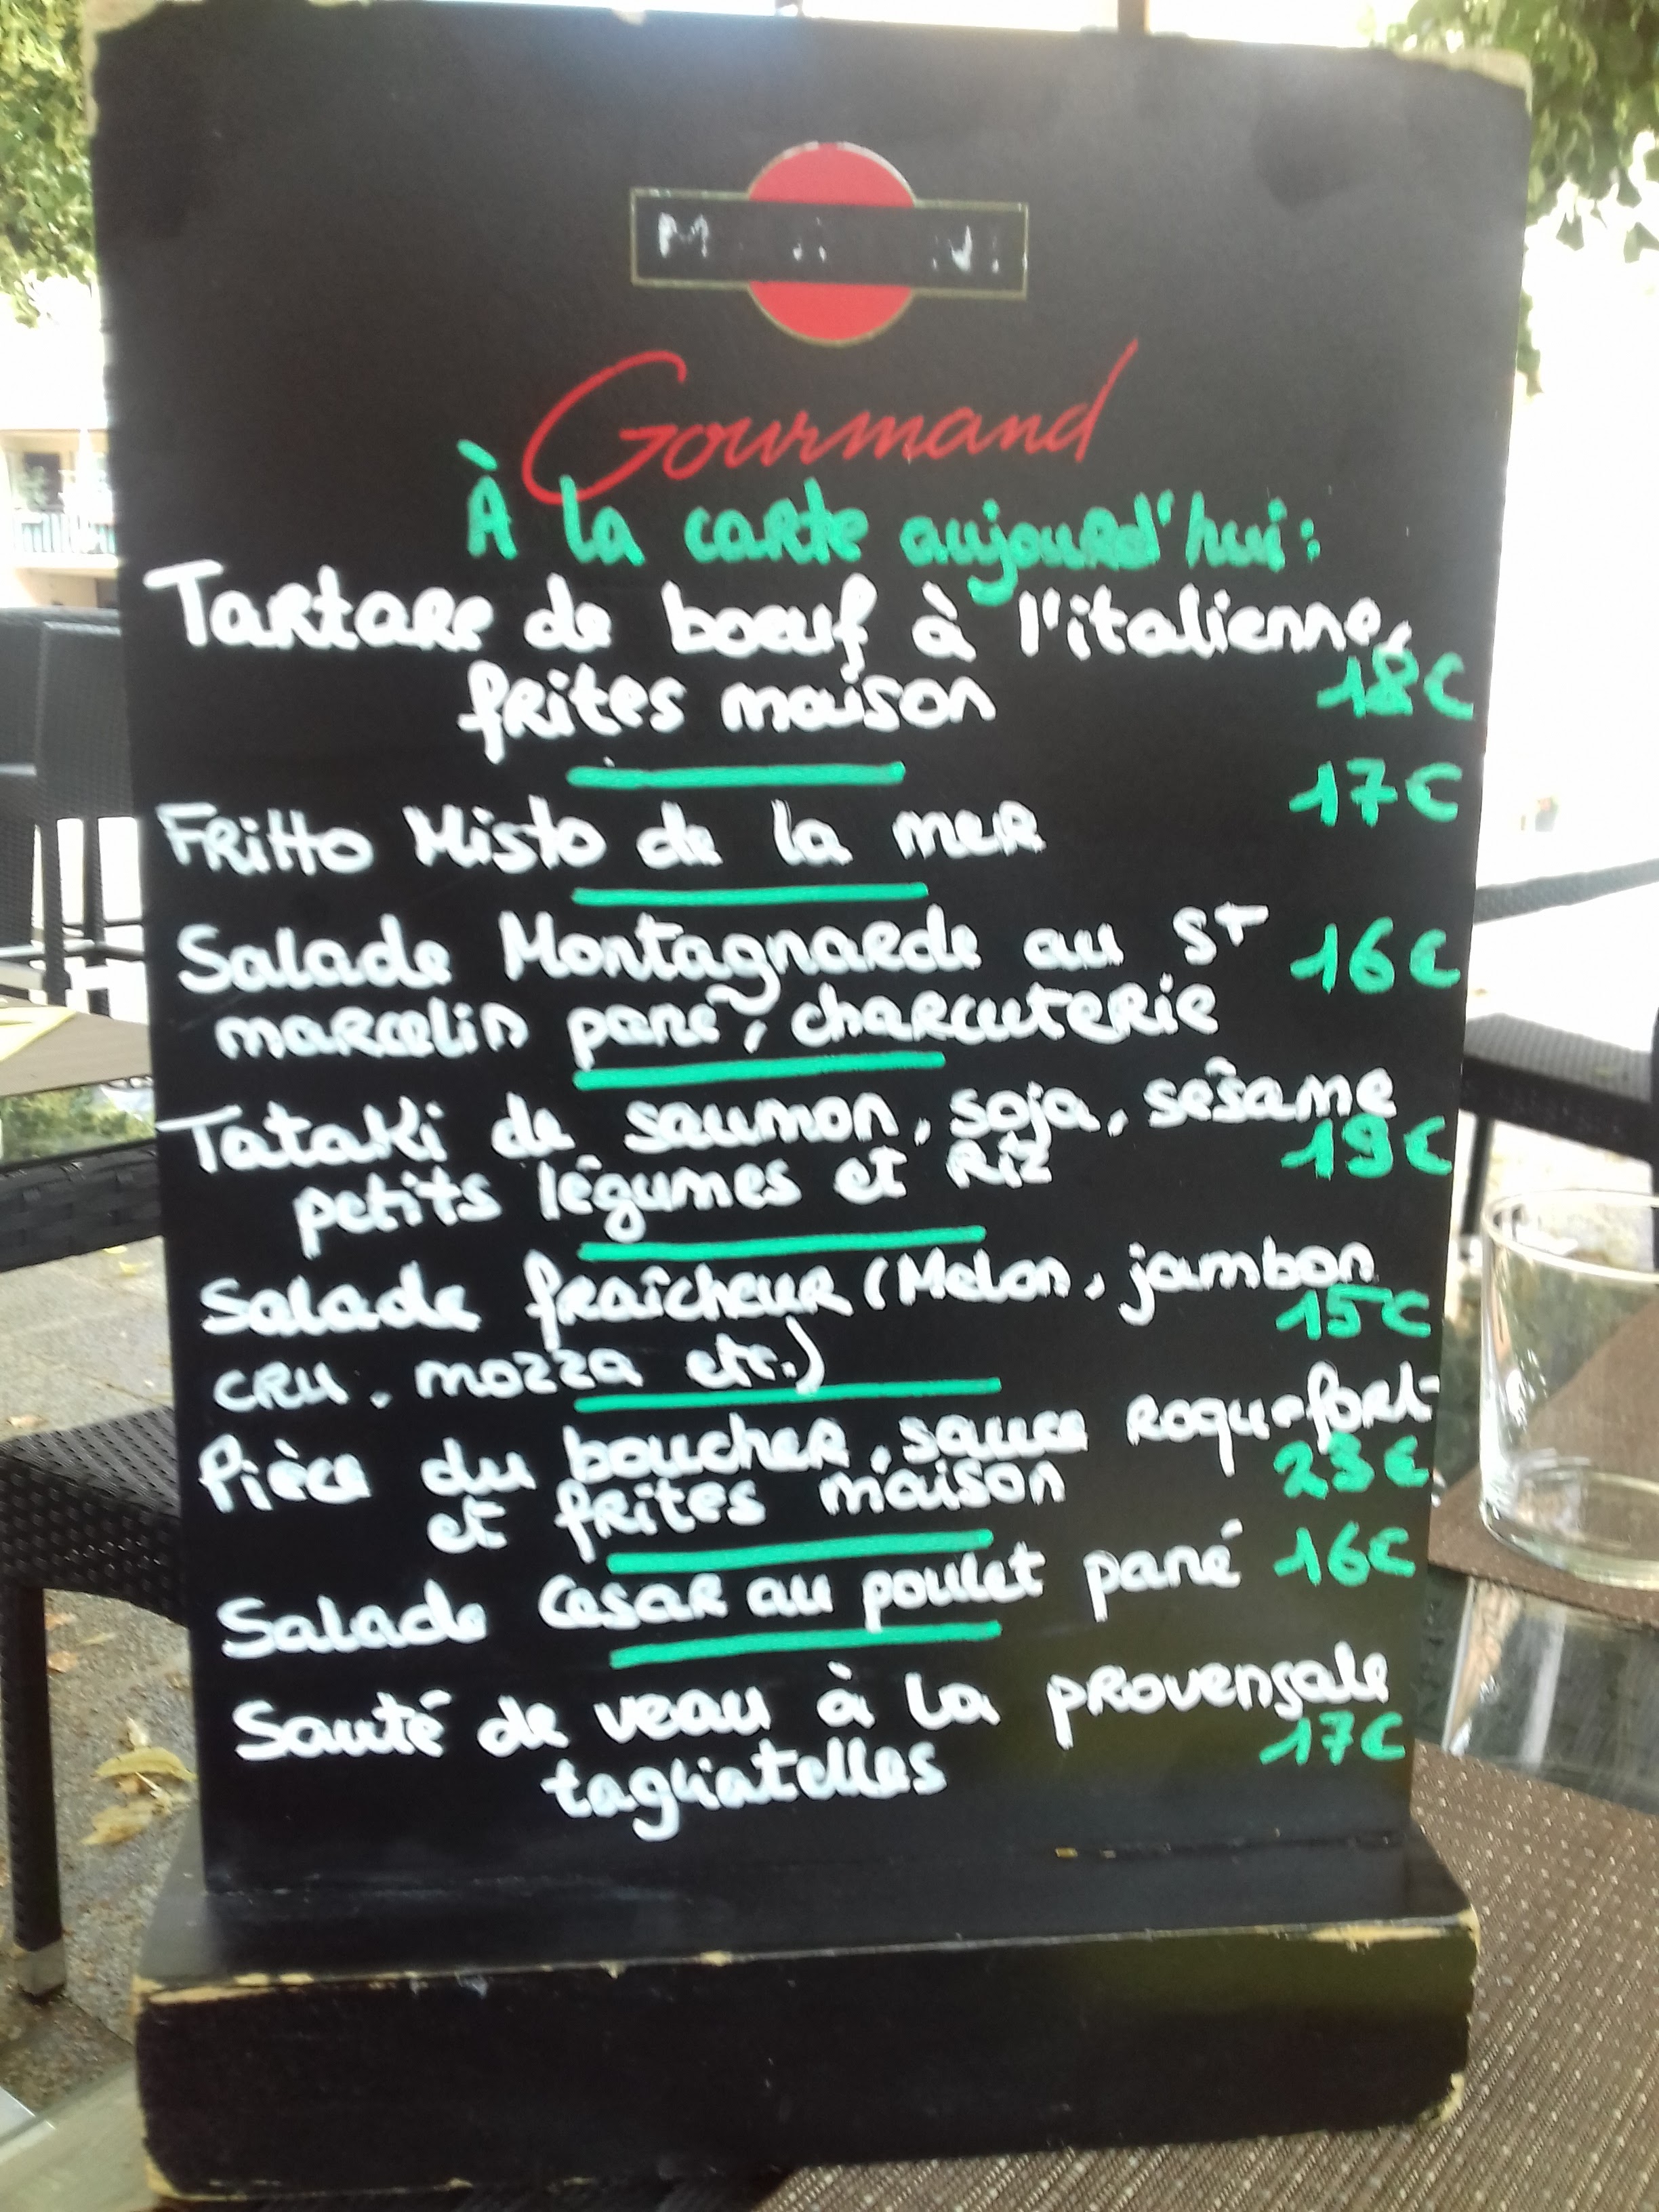 Gourmand
À la carte aujourd'hui:
Tartare de boeuf à l'italienne,
frites maison 18€
17€
Fritto Misto de la mer
Salade Montagnarde au ST 16€
marcelin pané, charcuterie
Tataki de saumon, soja, sésame
19€
petits légumes et riz
Salade fraîcheur (Melon, jambon
15€
cru, mozza etc.)
Pièce du boucher, sauce roquefort
23€
et frites maison
Salade Cesar au poulet pané 16€
Sauté de veau à la provençale
17€
tagliatelles